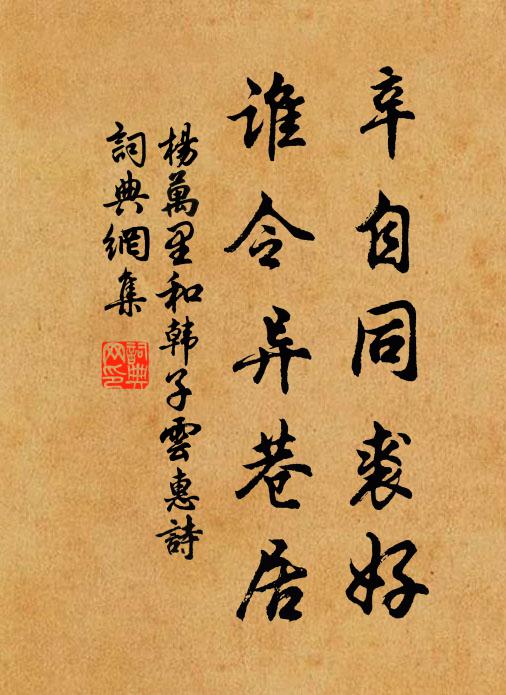 幸自同裘好
誰令异巷居
楊萬里和韩子雲惠詩
詞典網集
詞典网印